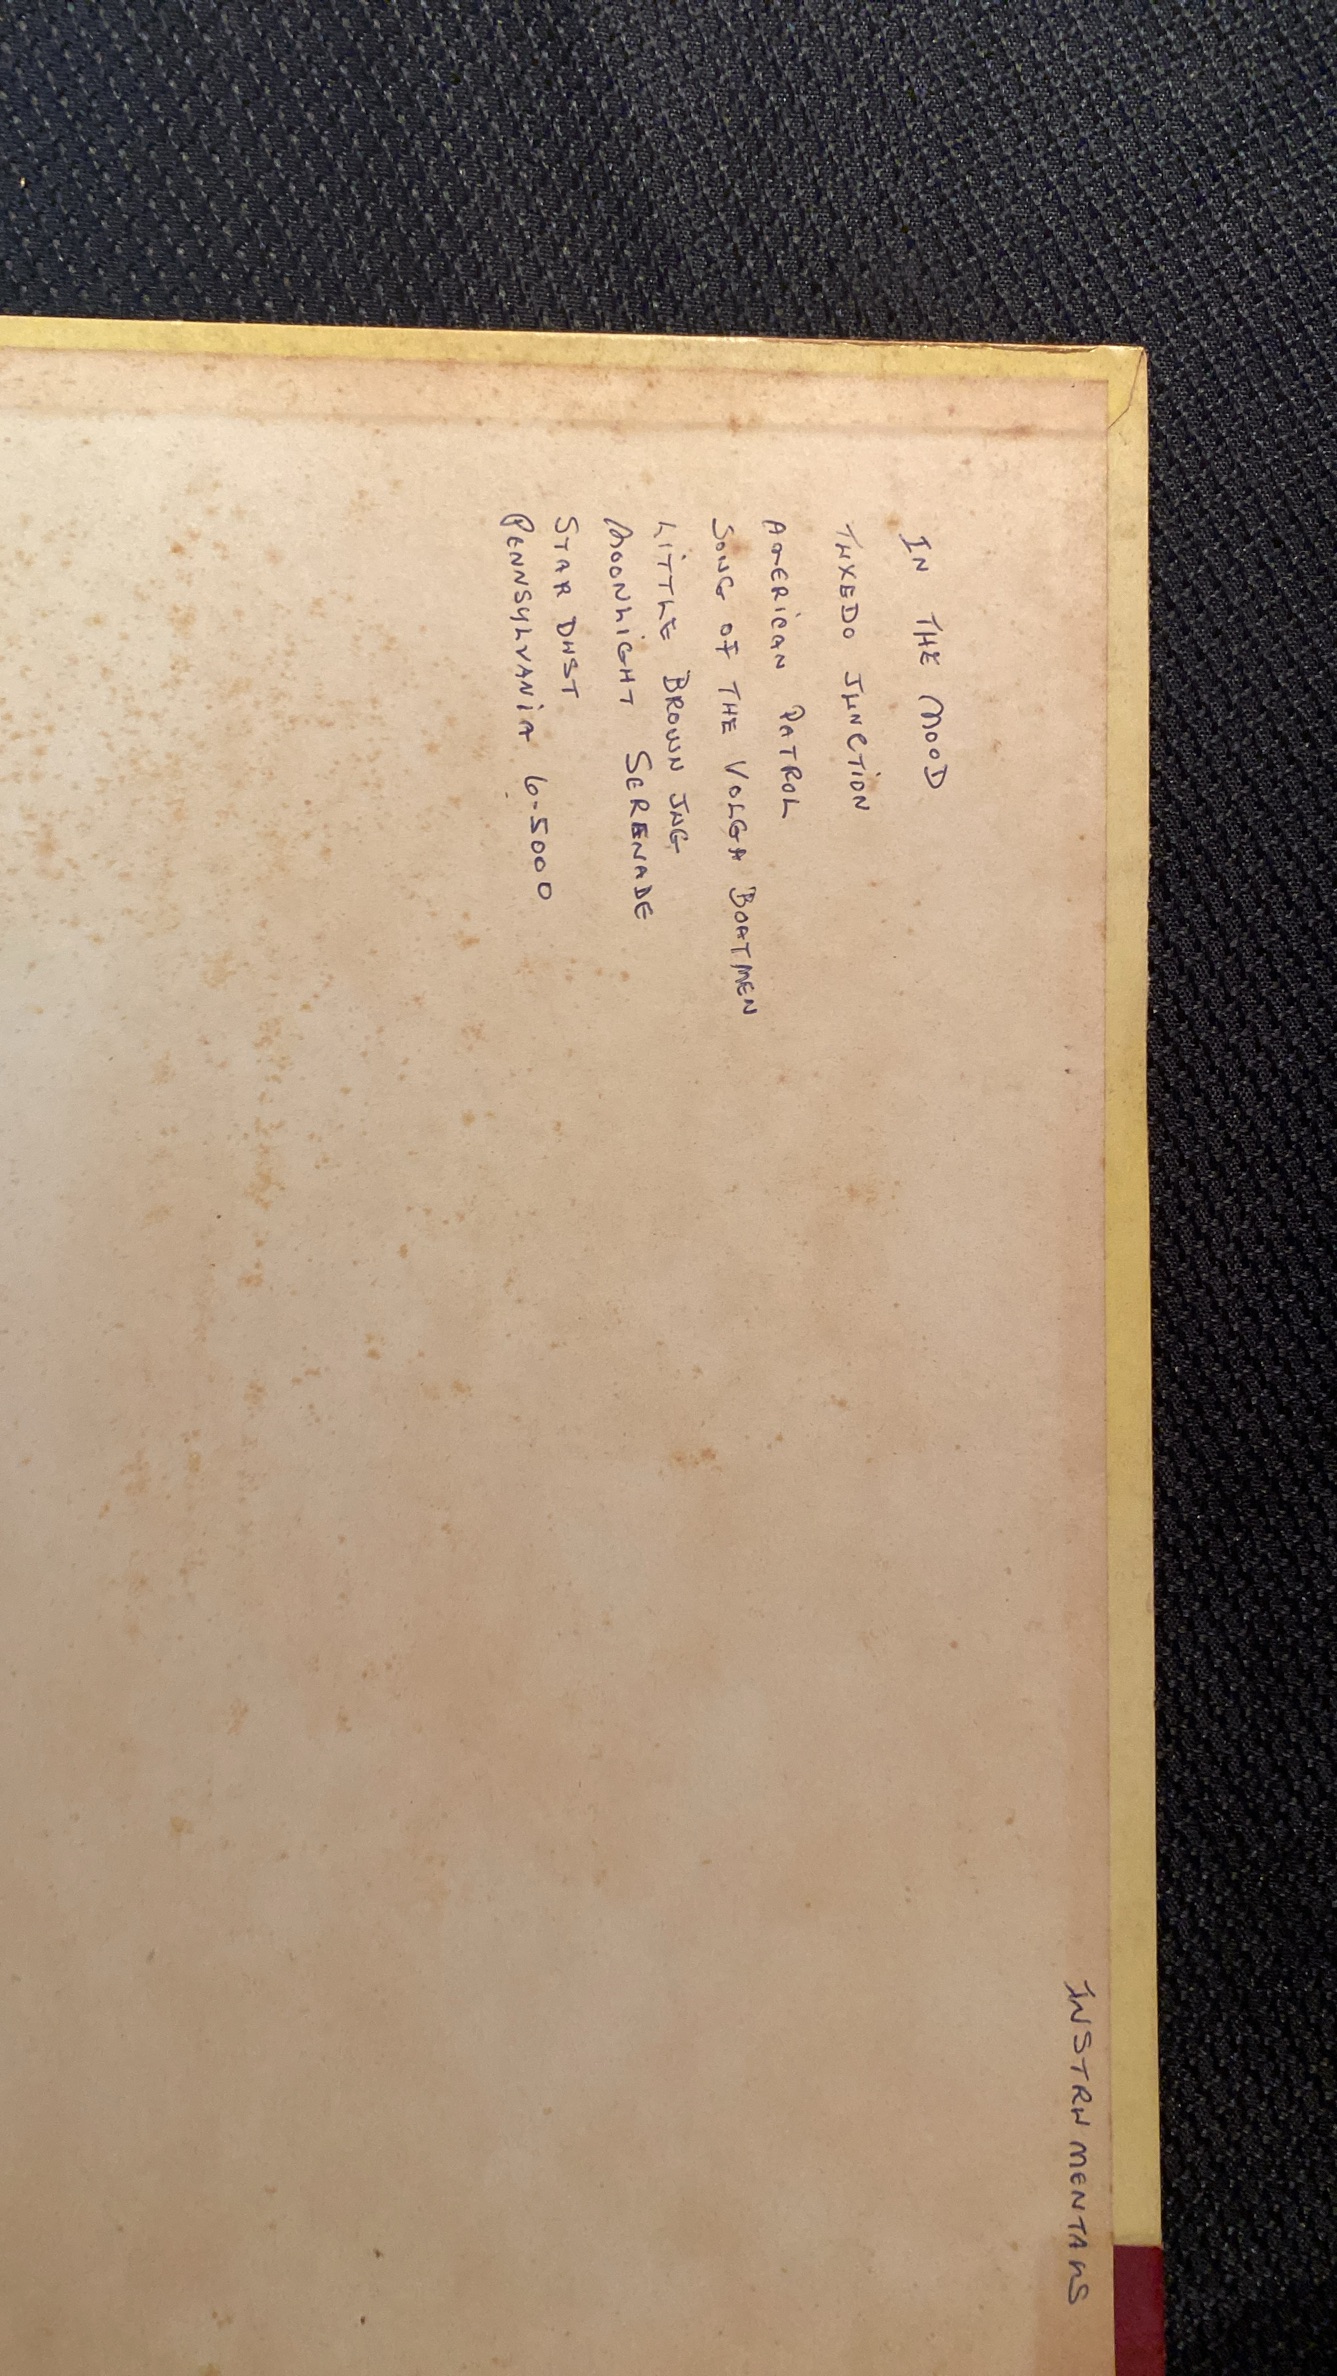 INSTRUMENTALS
IN THE MOOD
TUXEDO JUNCTION
AMERICAN PATROL
SONG OF THE VOLGA BOATMEN
LITTLE BROWN JUG
MOONLIGHT SERENADE
STAR DUST
PENNSYLVANIA 6-5000